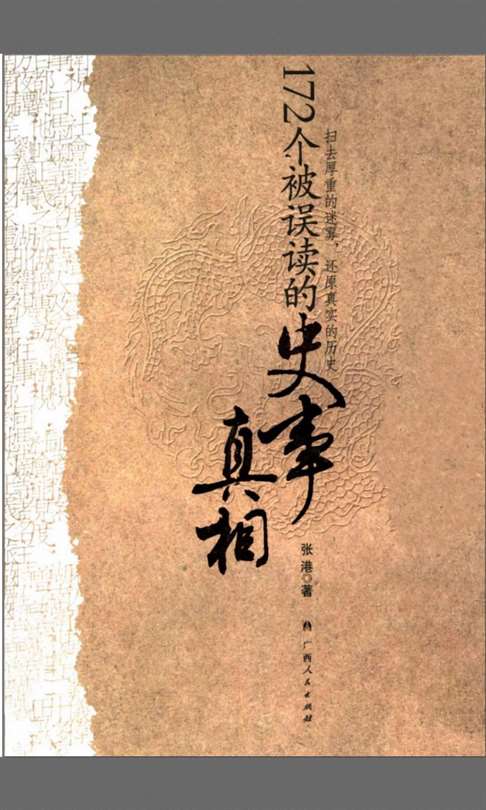 扫去厚重的迷雾，还原真实的历史
172个被误读的史事
真相
张港◎著
广西人民出版社